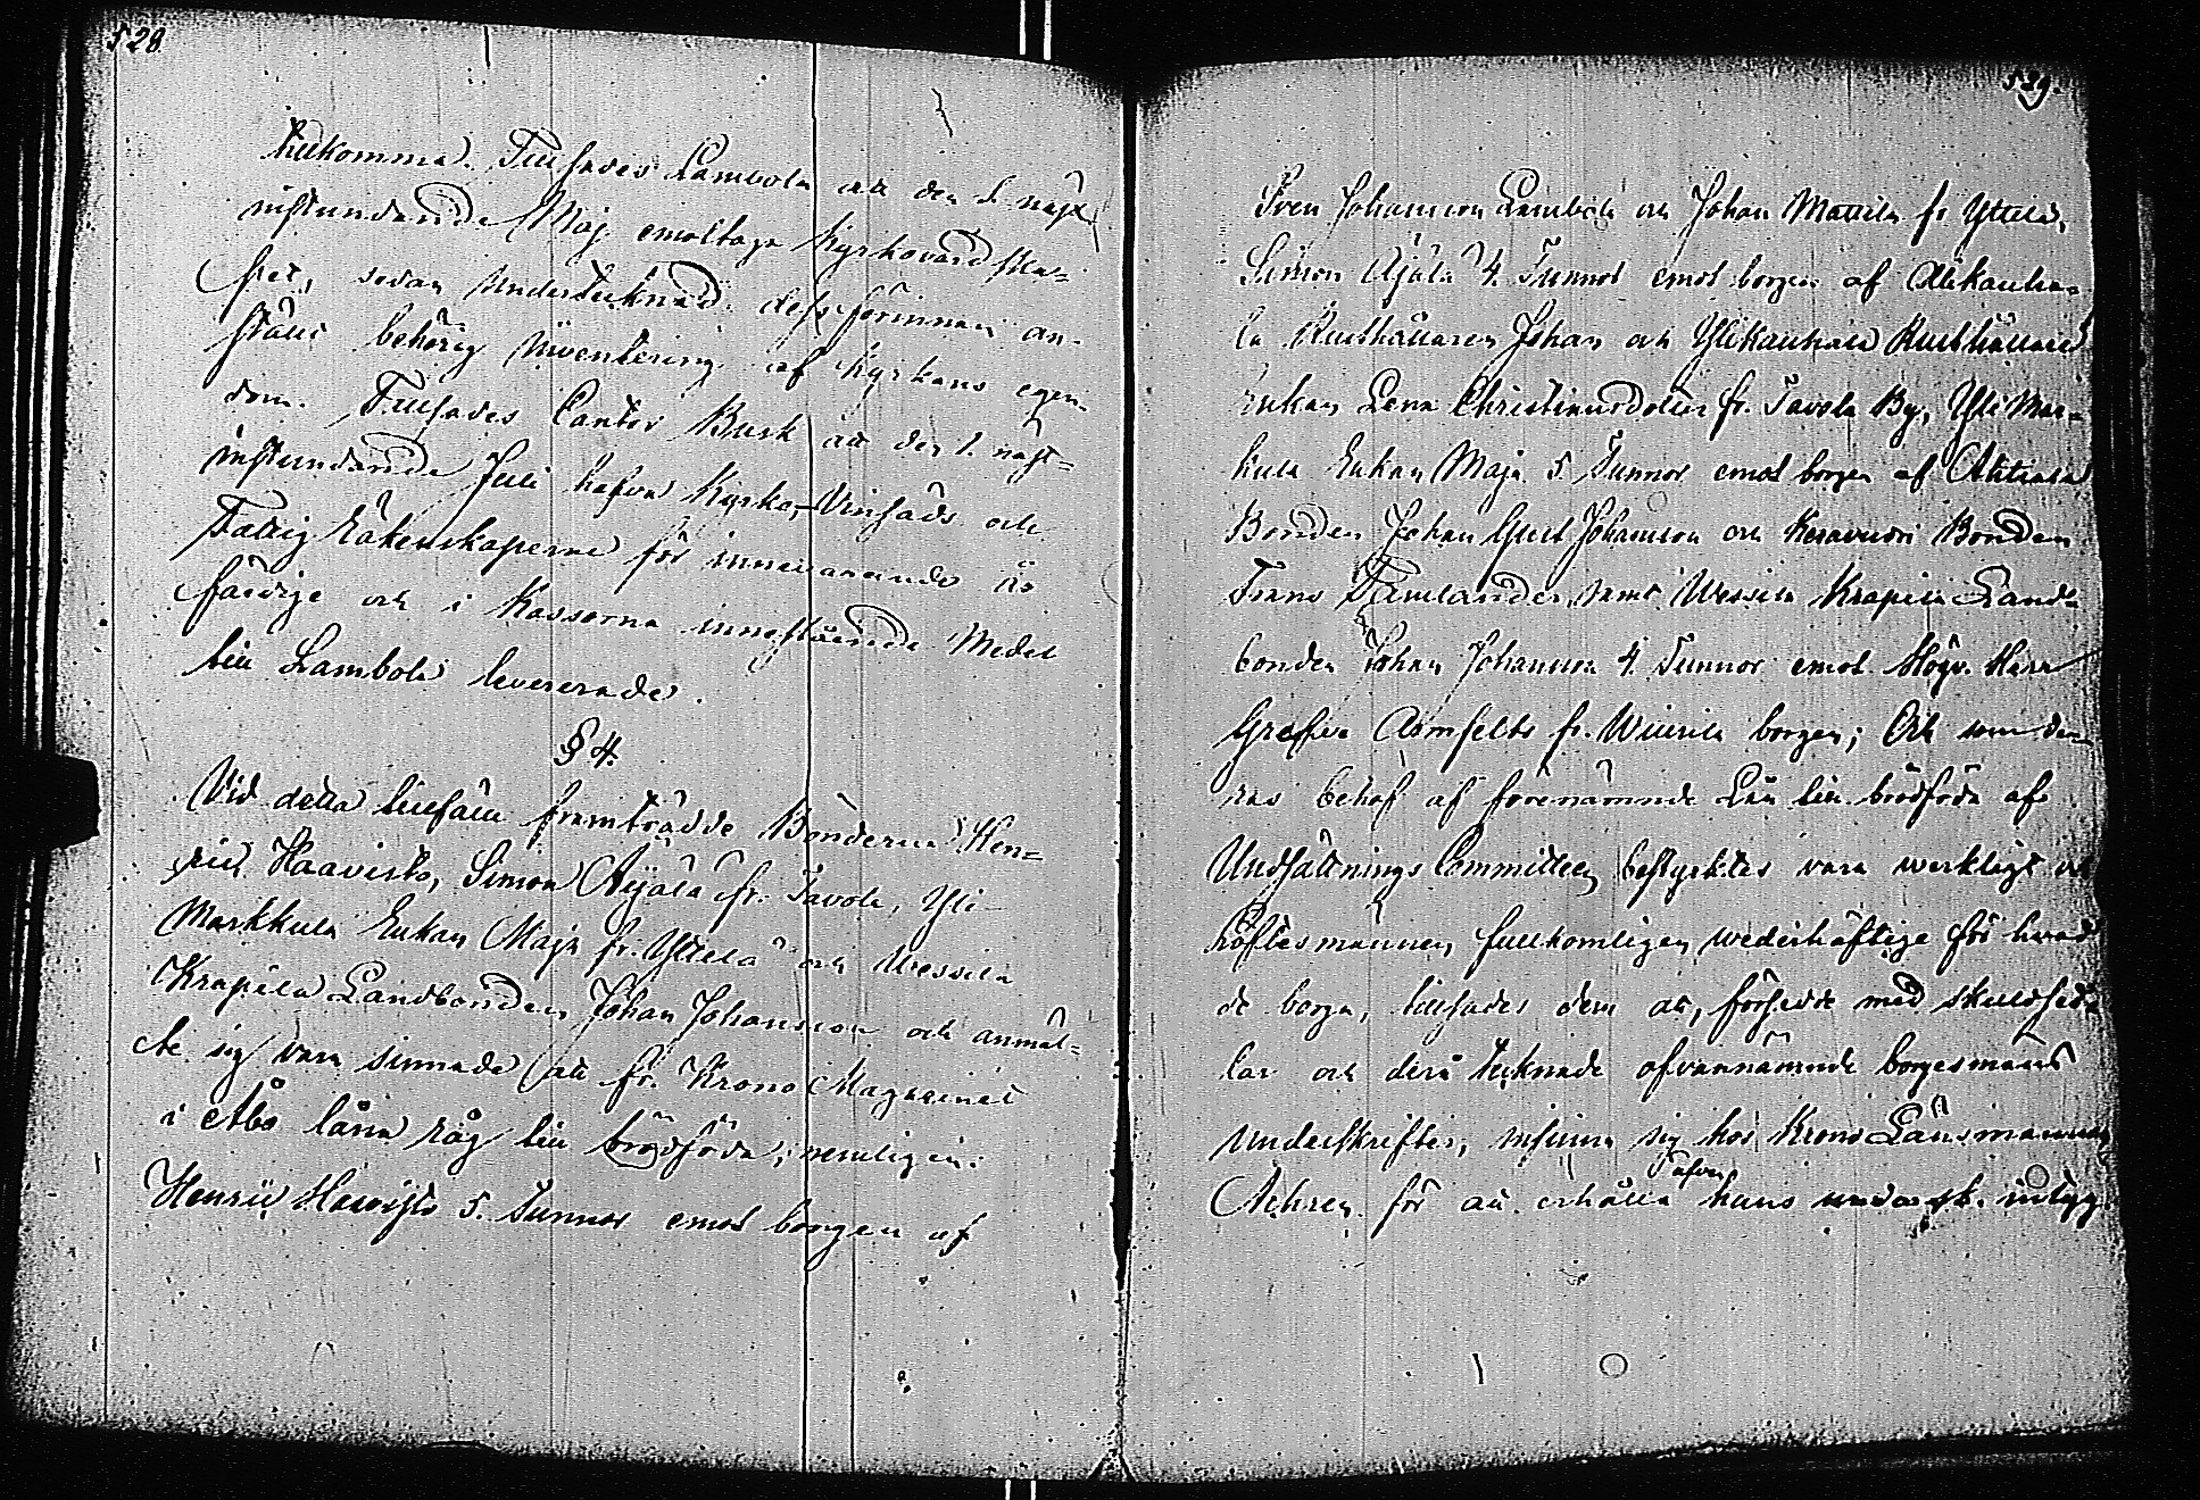 528.
tillkomma. Tillsades Lambola att den 1. näst
instundande Maj emottaga Kyrkovärdska=
pet, sedan undertecknad dess förinnan an-
stält behörig inventering af Kyrkans egen-
dom. Tillsades Cantor Busk att den 1. näst=
instundande Juli hafva Kyrko-, Vinsäds och
Fattig Räkenskaperne för innevarande år
färdige och i Kassorna innestående Medel
till Lambola levererade.
§ 4.
Vid detta tillfälle framträdde Bönderne Hen=
rik Haavisto, Simon Äijälä fr. Tavola, Yli
Markkula Enkan Maja fr. Yttelä och Wessila
Krapila Landbonden Johan Johansson och anmäl=
te sig vara sinnade att fr. Krono Magazinet
i Åbo låna råg till brödföda, nemligen:
Henric Haavisto 5. Tunnor emot borgen af
529.
Sven Johansson Lambola och Johan Mattila fr. Yttelä,
Simon Äijälä 4. Tunnor emot borgen af Alikauha=
la Rusthållaren Johan och Ylikauhala Rusthållare
Enkan Lena Christiansdotter fr. Tavola By, Yli Mar=
kula Enkan Maja 5 Tunnor emot borgen af Alitala
Bonden Johan Gust Johansson och Keravuori Bonden
Frans Tamlander, samt Wessila Krapila Land=
bonden Johan Johansson 4. Tunnor emot Högv. Herr
Grefve Armfelts fr. Wiurila borgen; Och som de=
ras behof af förenämnde Lån till brödföda af
Undsättnings Committeen bestyrktes vara werkligt och
löftesmännen fullkomligen wederhäftige för hvad
de borga, tillsades dem att, försedde med skuldsed=
lar och derå tecknade ofvannämnde borgesmäns
underskrifter, infinna sig hos Krono Länsmannen
Achren för att erhålla hans intyg